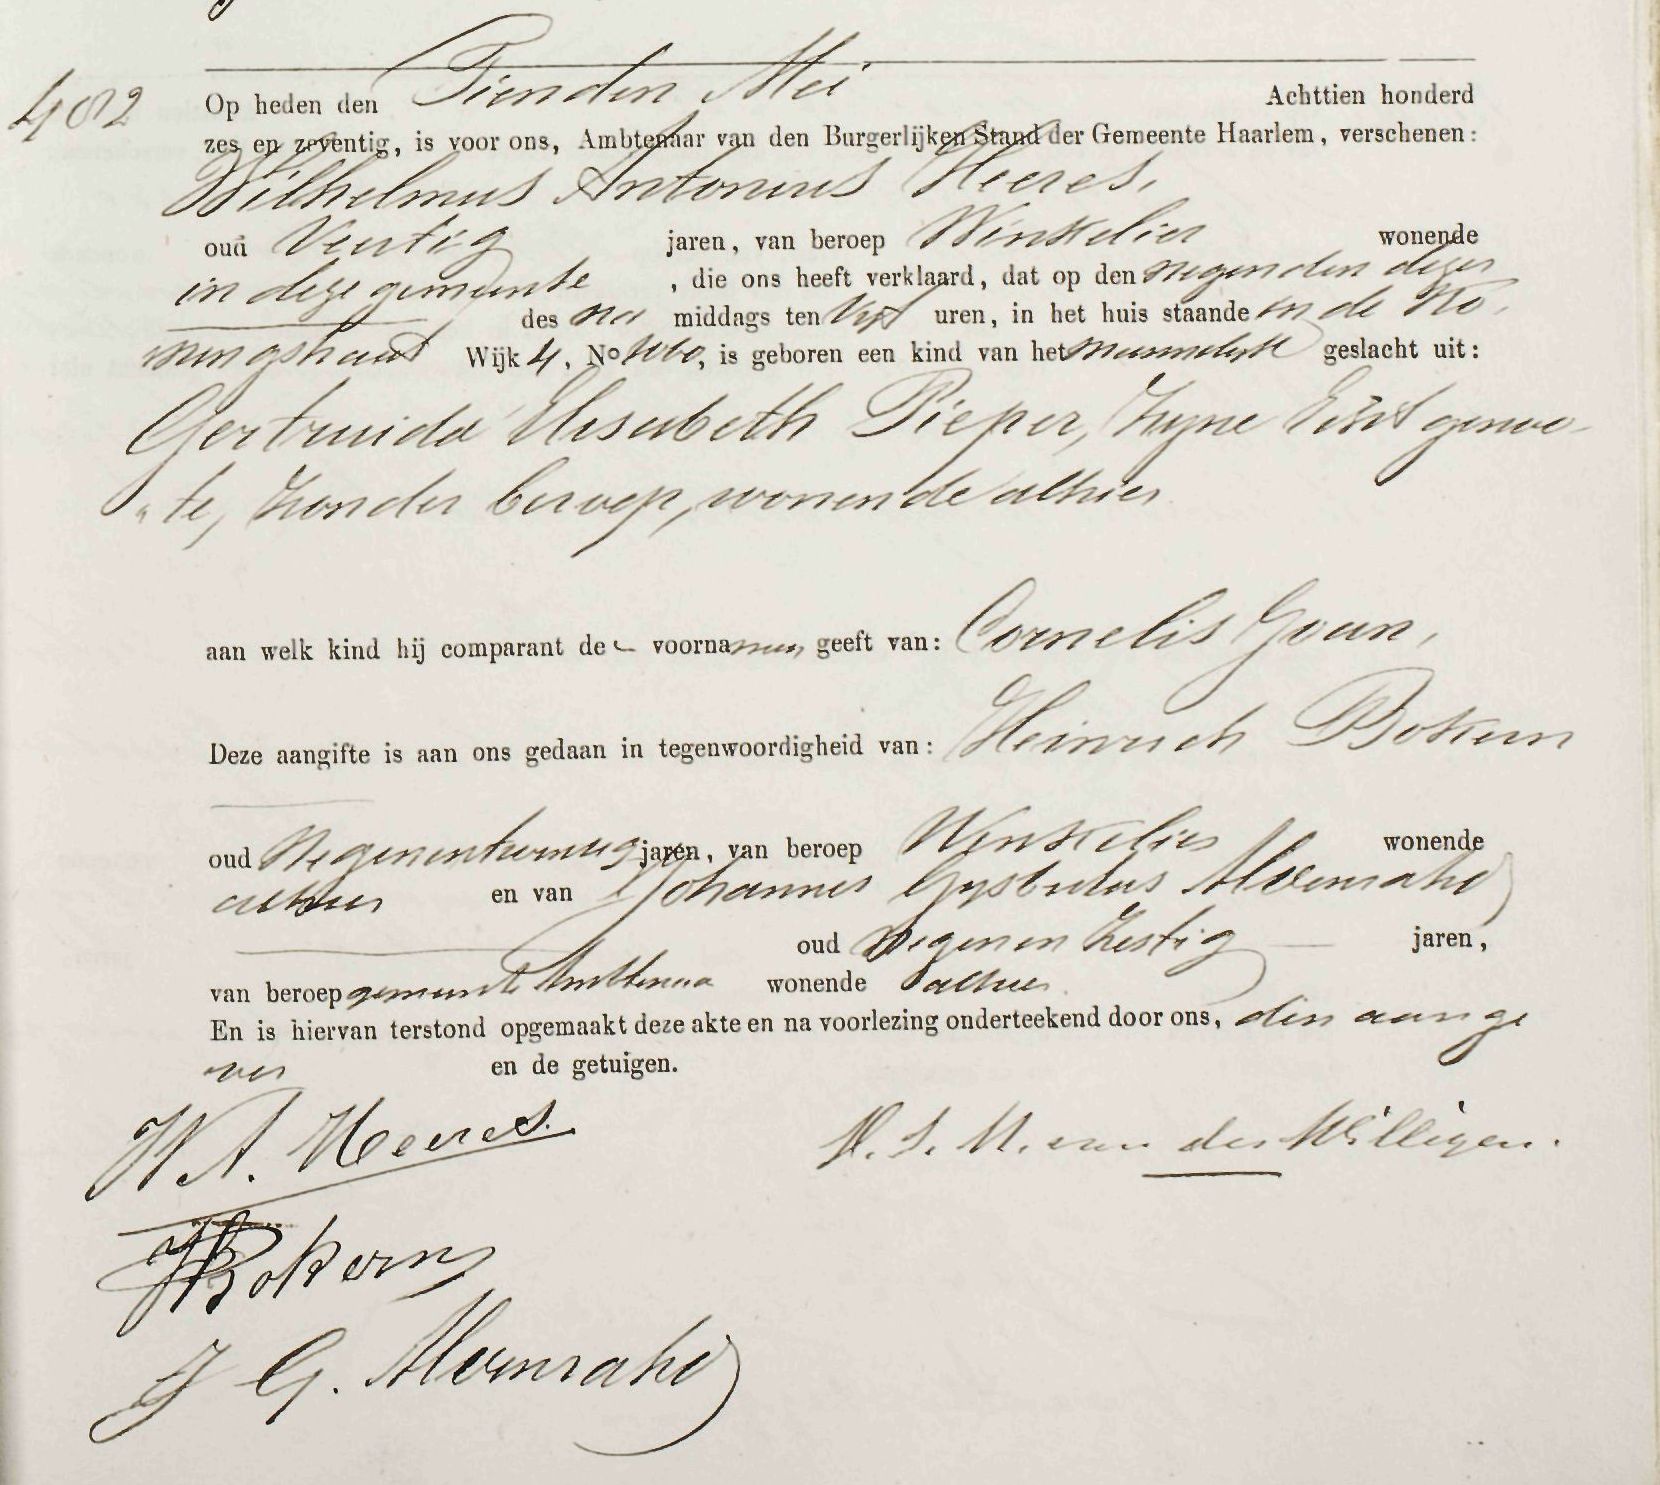 402
Op heden den Tienden Mei Achttien honderd
zes en zeventig, is voor ons, Ambtenaar van den Burgerlijken Stand der Gemeente Haarlem, verschenen:
Wilhelmus Antonius Heeres,
oud Veertig jaren, van beroep Winkelier wonende
in deze gemeente, die ons heeft verklaard, dat op den negenden dezer
des na middags ten vijf uren, in het huis staande in de Ko-
ningstraat Wijk 4, No, is geboren een kind van het mannelijk geslacht uit:
Gertruida Elisabeth Pieper, Zyne Echtgenoo-
"te, zonder beroep, wonende alhier
aan welk kind hij comparant de voornamen geeft van: Cornelis Joan,
Deze aangifte is aan ons gedaan in tegenwoordigheid van: Heinrich Bokern
oud Negenentwintig jaren, van beroep Winkelier wonende
alhier en van Johannes Gysbertus
oud Negen en Zestig jaren,
van beroep gemeente Ambtenaar wonende alhier
En is hiervan terstond opgemaakt deze akte en na voorlezing onderteekend door ons, den aange
ver en de getuigen.
W A. Heeres. van der Willigen.
HBokern
J G.